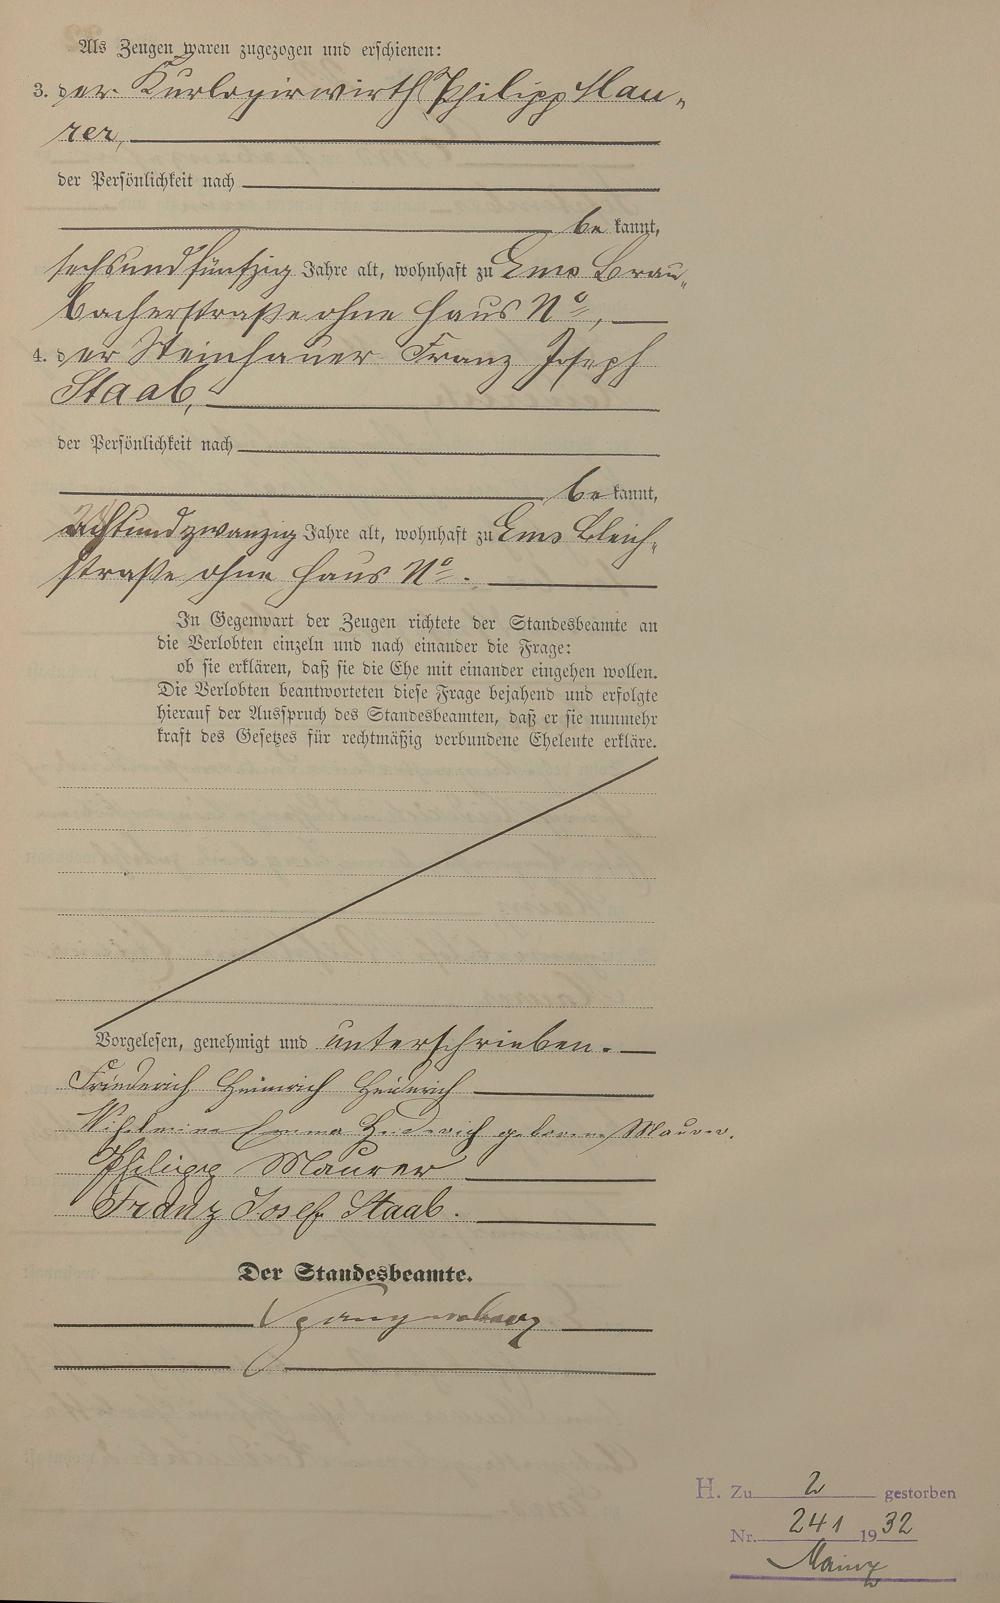 Als Zeugen waren zugezogen und erschienen:
3. der Kurlogirwirth Philipp Mau-
rer,
der Persönlichkeit nach
be kannt,
sechsundfünfzig Jahre alt, wohnhaft zu Ems Brau-
bacherstraße ohne Haus No,
4. der Steinhauer Franz Joseph
Staab,
der Persönlichkeit nach
be kannt,
achtundzwanzig Jahre alt, wohnhaft zu Ems Bleich-
straße ohne Haus No.
In Gegenwart der Zeugen richtete der Standesbeamte an
die Verlobten einzeln und nach einander die Frage:
ob sie erklären, daß sie die Ehe mit einander eingehen wollen.
Die Verlobten beantworteten diese Frage bejahend und erfolgte
hierauf der Ausspruch des Standesbeamten, daß er sie nunmehr
kraft des Gesetzes für rechtmäßig verbundene Eheleute erkläre.
Vorgelesen, genehmigt und unterschrieben.
Friederich Heinrich Heiderich
Wilhelmine Emma Heiderich geborene Maurer.
Philipp Maurer
Franz Josef Staab.
Der Standesbeamte.
H. Zu 2 gestorben
Nr. 241 1932
Mainz